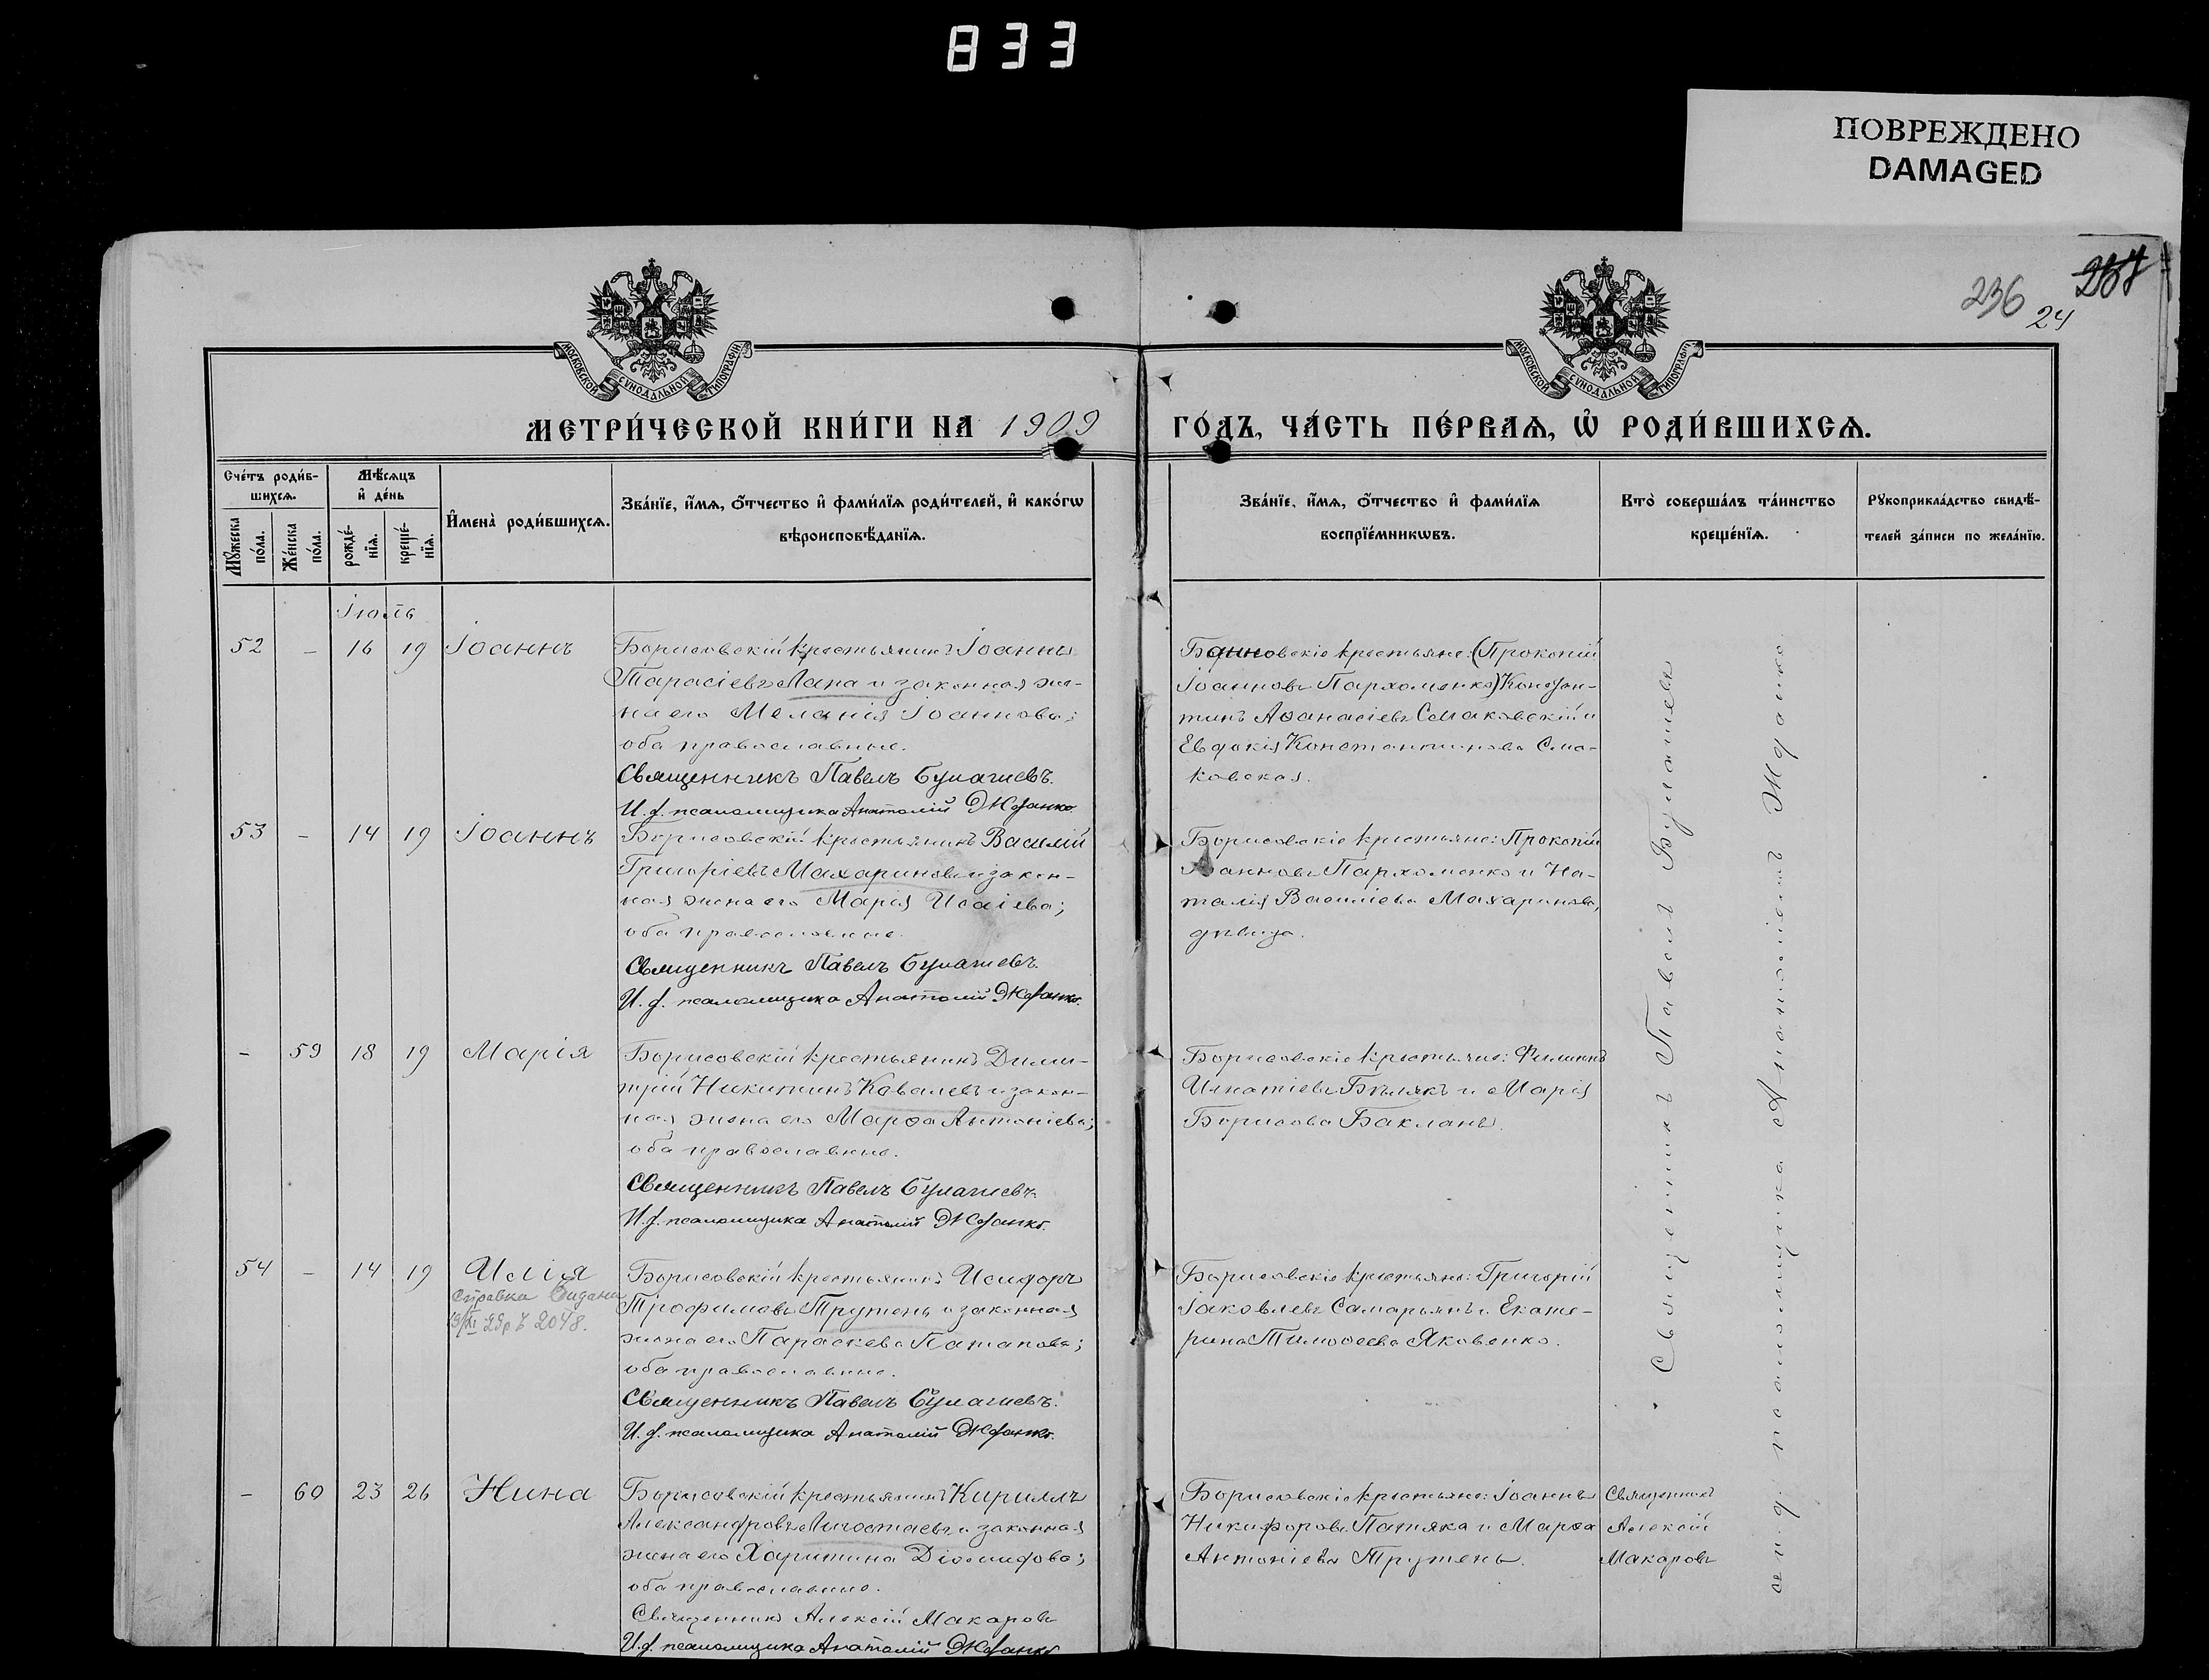 833
ПОВРЕЖДЕНО
DAMAGED
236
24
МОСКОВСКОЙ СУНОДАЛЬНОЙ ТИПОГРАФІИ
МОСКОВСКОЙ СУНОДАЛЬНОЙ ТИПОГРАФІИ
МЕТРИ́ЧЕСКОЙ КНИ́ГИ НА 1909
ГО́ДЪ, ЧА́СТЬ ПЕ́РВАѦ, Ѡ РОДИ́ВШИХСѦ.
Сче́тъ роди́в-
шихсѧ.
Мѣ́сѧцъ
и҆ де́нь
Мꙋ́жеска
по́ла.
Же́нска
по́ла.
рожде́-
нїѧ.
креще́-
нїѧ.
И҆мена̀ роди́вшихсѧ.
Зва́нїе, и҆́мѧ, ѻ҆́тчество и҆ фами́лїѧ роди́телей, и҆ како́гѡ
вѣроисповѣ́данїѧ.
Зва́нїе, и҆́мѧ, ѻ҆́тчество и҆ фами́лїѧ
воспрїе́мникѡвъ.
Кто̀ соверша́лъ та́инство
креще́нїѧ.
Рꙋкоприкла́дство свидѣ́-
телей за́писи по жела́нїю.
Іюль
52 - 16 19 Іоаннъ
Борисовскій крестьянинъ Іоаннъ
Тарасіевъ Лапа и законная же-
на его Меланія Іоаннова;
оба православные.
Священникъ Павелъ Булашевъ.
И. д. псаломщика Анатолій Жданко
Борисовскіе крестьяне: (Прокопій
Іоанновъ Пархоменко) Констан-
тинъ Аѳанасіевъ Смаковскій и
Евдокія Константинова Сма-
ковская.
53 - 14 19 Іоаннъ
Борисовскій крестьянинъ Василій
Григоріевъ Махариновъ и закон-
ная жена его Марія Исаіева;
оба православные.
Священникъ Павелъ Булашевъ.
И. д. псаломщика Анатолій Жданко.
Борисовскіе крестьяне: Прокопій
Іоанновъ Пархоменко и На-
талія Василіева Махаринова,
дѣвица.
- 59 18 19 Марія
Борисовскій крестьянинъ Дими-
трій Никитинъ Ковалевъ и закон-
ная жена его Марѳа Антоніева;
оба православные.
Священникъ Павелъ Булашевъ.
И. д. псаломщика Анатолій Жданко.
Борисовскіе крестьяне: Филиппъ
Игнатіевъ Бѣлякъ и Марія
Борисова Бакланъ.
54 - 14 19 Илія
Справка выдана
2048.
Борисовскій крестьянинъ Исидоръ
Трофимовъ Трутень и законная
жена его Параскева Патапова;
оба православные.
Священникъ Павелъ Булашевъ.
И. д. псаломщика Анатолій Жданко.
Борисовскіе крестьяне: Григорій
Іаковлевъ Самарьянъ и Екате-
рина Тимоѳеева Яковенко.
- 60 23 26 Нина
Борисовскій крестьянинъ Кириллъ
Александровъ Лигостаевъ и законная
жена его Харитина Діомидова;
оба православные.
Священникъ Алексій Макаровъ
И. д. псаломщика Анатолій Жданко
Борисовскіе крестьяне: Іоаннъ
Никифоровъ Патяка и Марѳа
Антоніева Трутень.
Священникъ
Алексій
Макаровъ
Священникъ Павелъ Булашевъ
съ и. д. псаломщика Анатоліемъ Жданко